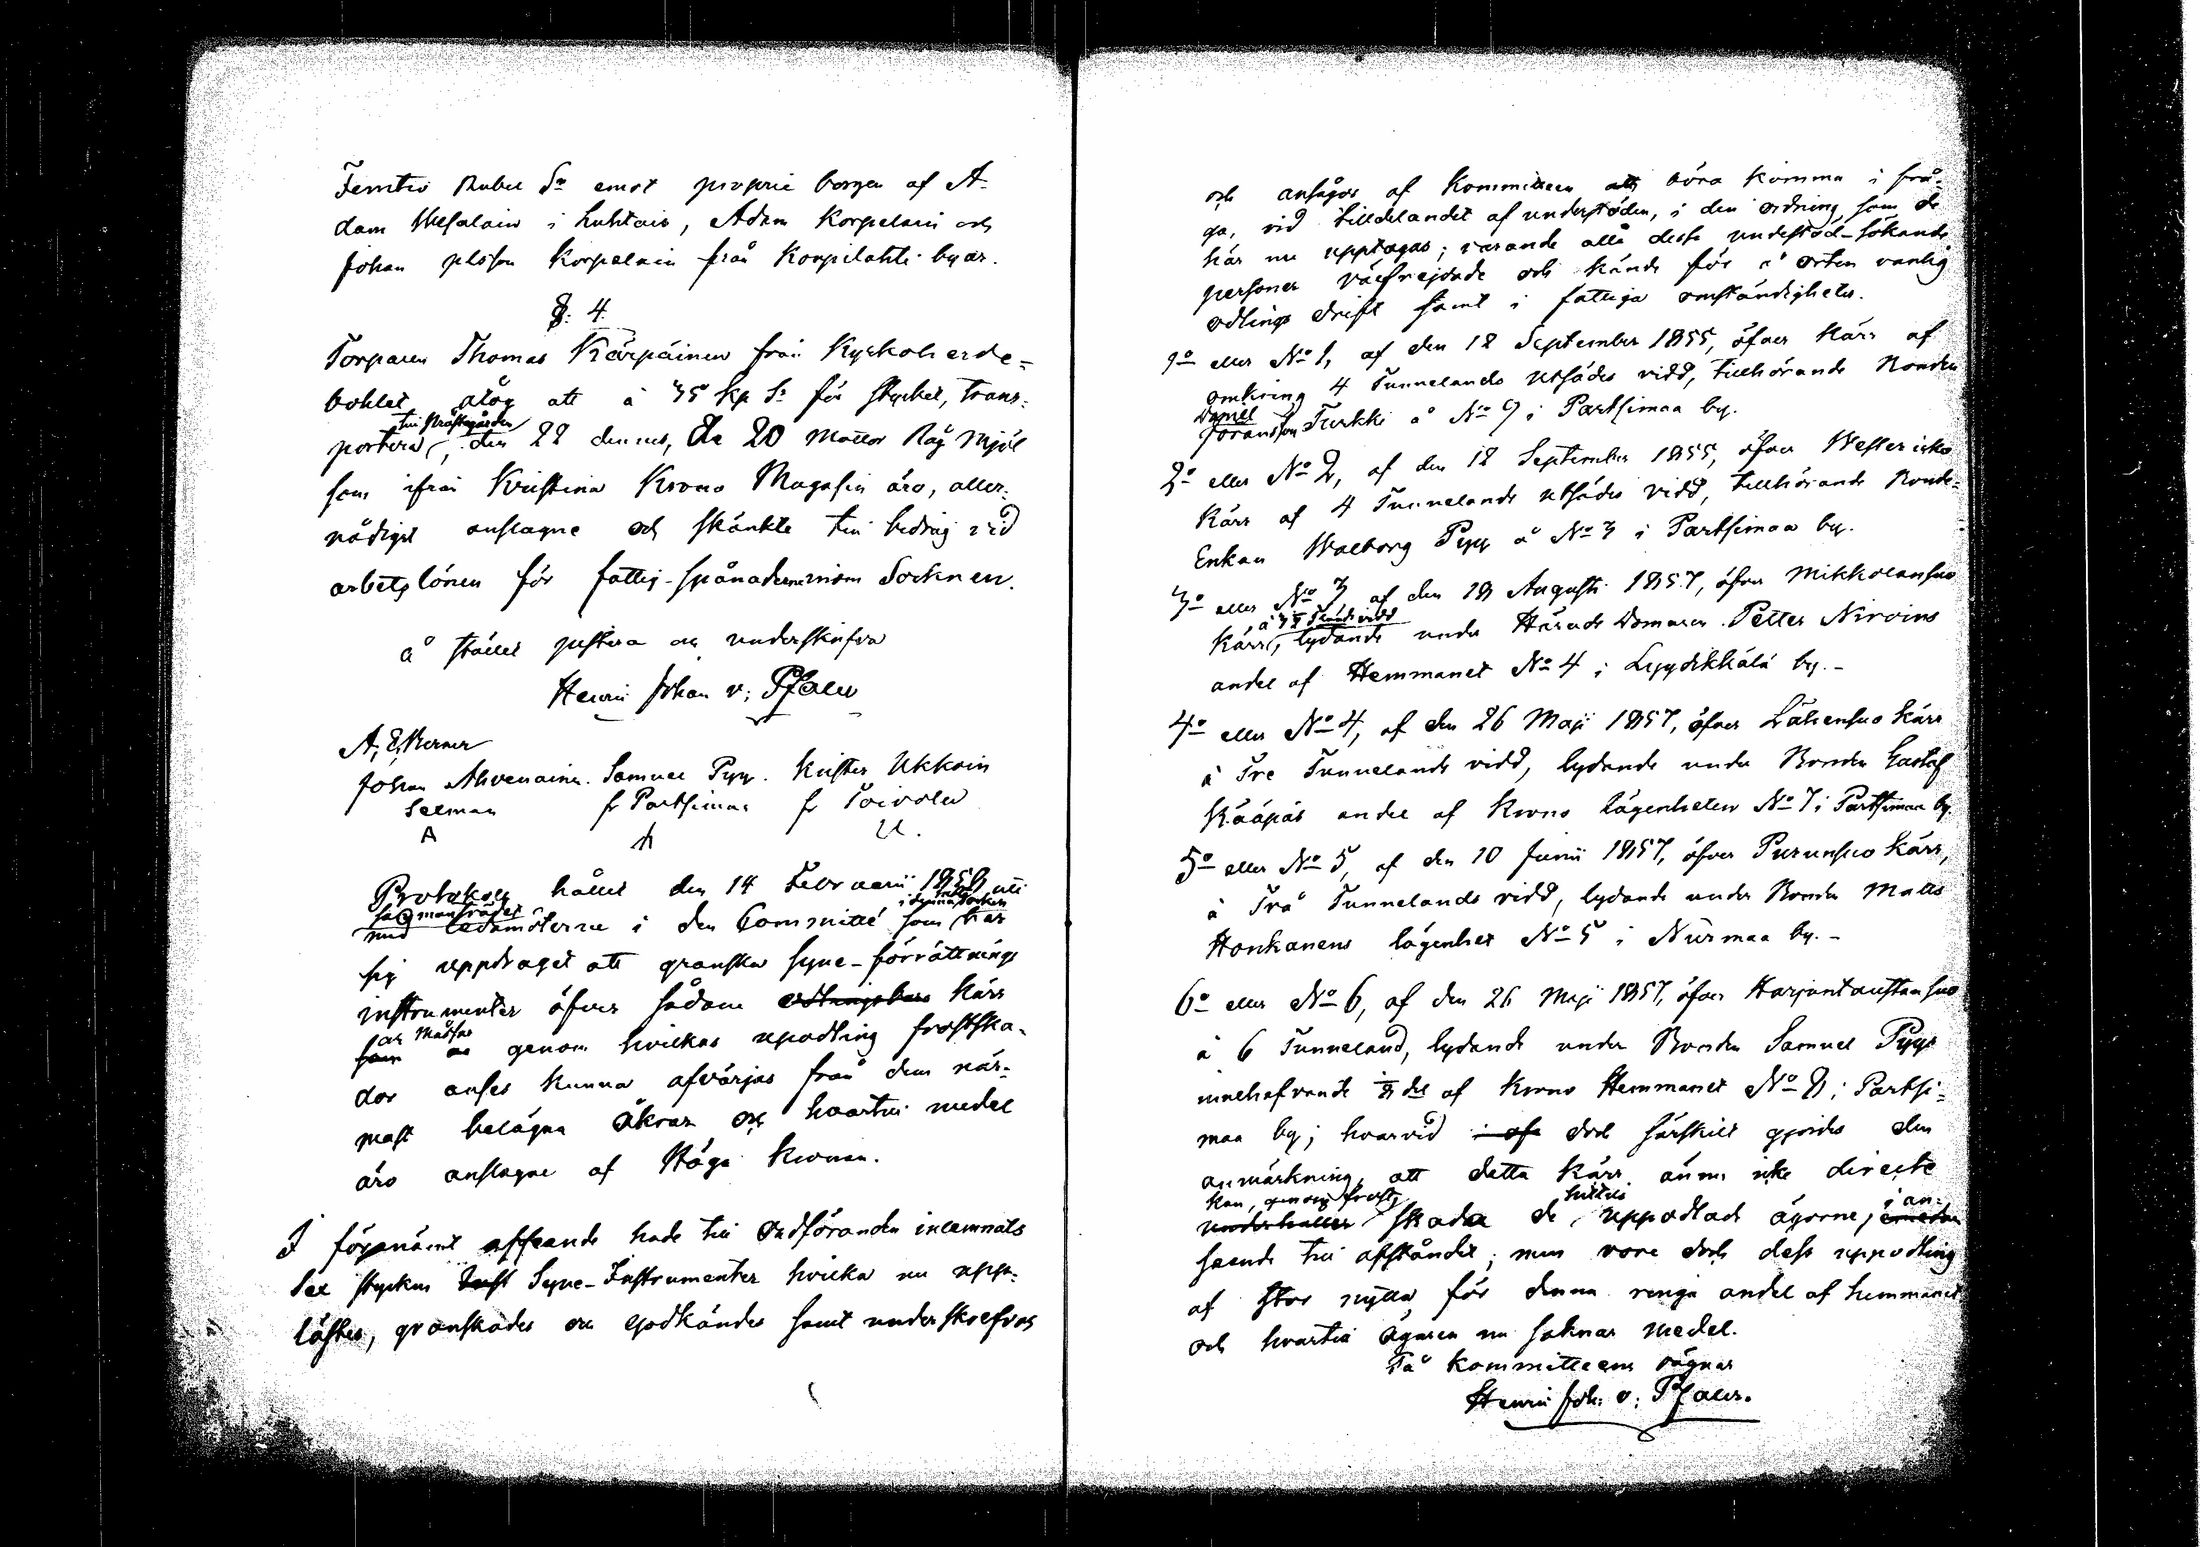 Femtio Rubel Sr emot proprie borgen af A-
dam Wesalain i Luhtais, Adam Korpelain och
Johan plsson Korpelain från Korpilahti byar.
§: 4.
Torparen Thomas Kärpäinen från Kyrkoherde-
bohlet åtog att à 35 kp Sr för stycket, trans-
till Prästgården
portera, den 22 dennes, de 20 mattor Råg Mjöl
som ifrån Kristina Krono Magasin äro, aller-
nådigst anslagne och skänkte till bidrag vid
arbetslönen för fattig-spånaderne inom Socknen.
å stället justera och underskrifva
Henric Johan v: Pfaler
A. E. Berner
Johan Ahvenainen. Samuel Pyy. Krister Ukkoin
Seeman fr Partsimaa fr Toivola
A U.
Protokoll hållet den 14 Februarii 1858 uti
i denna Socken
med Ledamöterne i den Committé som har
sig uppdraget att granska syne-förrättnings
instrumenter öfver sådane odlingsbara kärr
och Mossar
som genom hvilkas upodling frostska-
dor anses kunna afvärjas från dem när-
mast belägna åkrar och hvartill medel
äro anslagne af Höga Kronan.
I föganämt afseende hade till Ordföranden inlemnats
Sex stycken Syne-Instrumenter hvilka nu upp-
lästes, granskades och godkändes samt underskrefvos
och ansågos af Kommitteen att böra komma i frå-
ga, vid tilldelandet af understöden, i den ordning som de
här nu upptagas; varande alla desse undestöd-sökande
personer välfrejdade och kände för å orten vanlig
odlings drift samt i fattiga omständigheter.
1o eller No 1, af den 12 September 1855, öfver kärr af
omkring 4 Tunnelands utsädes vidd, tillhörande Bonden
Daniel
Göransson Turkki å No 9 i Partsimaa by.
2o eller No 2, af den 12 September 1855, öfver Westerisko
Kärr af 4 Tunnelands utsädes vidd, tillhörande Bonde-
Enkan Walborg Pyy å No 3 i Partsimaa by.
3o eller No 3 af den 18 Augusti 1857, öfver Mikkolansuo
kärr, lydande under Härads Domaren Petter Nirvins
andel af Hemmanet No 4 i Lyydikkälä by.-
4o eller No 4, af den 26 Maji 1857, öfver Lähensuo kärr
à Tre Tunnelands vidd, lydande under Bonden Gustaf
Kääpäs andel af Krono lägenheten No 7 i Partsimaa by.
5o eller No 5, af den 10 Junii 1857, öfver Purunsuo kärr,
à Två Tunnelands vidd, lydande under Bonden Matts
Honkanens lägenhet No 5 i Nurmaa by.-
6o eller No 6, af den 26 Maji 1857, öfver Harjuntaustan suo
à 6 Tunneland, lydande under Bonden Samuel Pyys
innehafvande del af Krono Hemmanet No 8 i Partsi-
maa by; hvarvid dock särskilt gjordes den
anmärkning, att detta kärr ännu icke directe
kan, genom frost, hittills i an-
underhåller skada de uppodlade ägorne,
seende till afståndet; men vore dock dess uppodling
af stor nytta för denna ringa andel af hemmanet
och hvartill ägaren nu saknar medel.
På Kommitteens vägnar
Henric Joh: v: Pfaler.